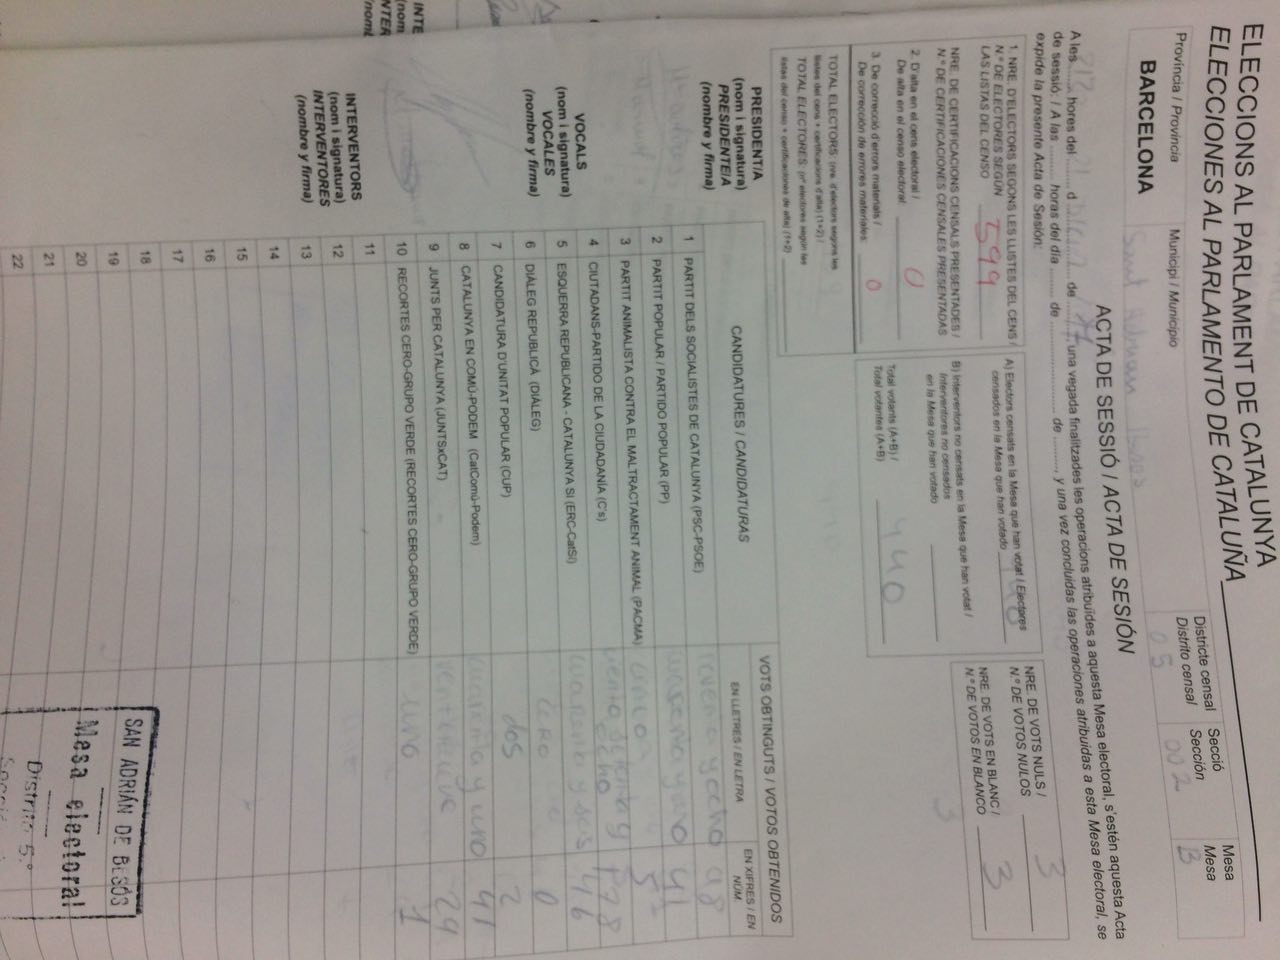 ELECCIONS AL PARLAMENT DE CATALUNYA
ELECCIONES AL PARLAMENTO DE CATALUÑA
Província / Provincia
Municipi / Municipio
Districte censal
Distrito censal
Secció
Sección
Mesa
Mesa
BARCELONA
05
002
B
ACTA DE SESSIÓ / ACTA DE SESIÓN
A les hores del d de una vegada finalitzades les operacions atribuïdes a aquesta Mesa electoral, s'estén aquesta Acta
de sessió: / A las horas del día de de , y una vez concluidas las operaciones atribuidas a esta Mesa electoral, se
expide la presente Acta de Sesión:
1. NRE. D'ELECTORS SEGONS LES LLISTES DEL CENS /
N.º DE ELECTORES SEGÚN
LAS LISTAS DEL CENSO 599
NRE. DE CERTIFICACIONS CENSALS PRESENTADES /
N.º DE CERTIFICACIONES CENSALES PRESENTADAS
2. D'alta en el cens electoral /
De alta en el censo electoral: 0
3. De correcció d'errors materials /
De corrección de errores materiales: 0
TOTAL ELECTORS (nre. d'electors segons les
llistes del cens + certificacions d'alta) (1+2) /
TOTAL ELECTORES (nº electores según las
listas del censo + certificaciones de alta) (1+2)
A) Electors censats en la Mesa que han votat / Electores
censados en la Mesa que han votado 440
B) Interventors no censats en la Mesa que han votat /
Interventores no censados
en la Mesa que han votado
Total votants (A+B) /
Total votantes (A+B) 440
NRE. DE VOTS NULS /
N.º DE VOTOS NULOS 3
NRE. DE VOTS EN BLANC /
N.º DE VOTOS EN BLANCO 3
CANDIDATURES / CANDIDATURAS
VOTS OBTINGUTS / VOTOS OBTENIDOS
EN LLETRES / EN LETRA
EN XIFRES / EN NÚM.
1 PARTIT DELS SOCIALISTES DE CATALUNYA (PSC-PSOE) noventa y ocho 98
2 PARTIT POPULAR / PARTIDO POPULAR (PP) cuarenta y uno 41
3 PARTIT ANIMALISTA CONTRA EL MALTRACTAMENT ANIMAL (PACMA) cinco 5
4 CIUTADANS-PARTIDO DE LA CIUDADANÍA (C's) ciento setenta y ocho 178
5 ESQUERRA REPUBLICANA - CATALUNYA SÍ (ERC-CatSí) cuarenta y seis 46
6 DIÀLEG REPUBLICÀ (DIÀLEG) cero 0
7 CANDIDATURA D'UNITAT POPULAR (CUP) dos 2
8 CATALUNYA EN COMÚ-PODEM (CatComú-Podem) cuarenta y uno 41
9 JUNTS PER CATALUNYA (JUNTSxCAT) veintinueve 29
10 RECORTES CERO-GRUPO VERDE (RECORTES CERO-GRUPO VERDE) uno 1
11
12
13
14
15
16
17
18
19
20
21
22
PRESIDENT/A
(nom i signatura)
PRESIDENTE/A
(nombre y firma)
VOCALS
(nom i signatura)
VOCALES
(nombre y firma)
INTERVENTORS
(nom i signatura)
INTERVENTORES
(nombre y firma)
SAN ADRIÁN DE BESÓS
Mesa electoral
Distrito 5.º